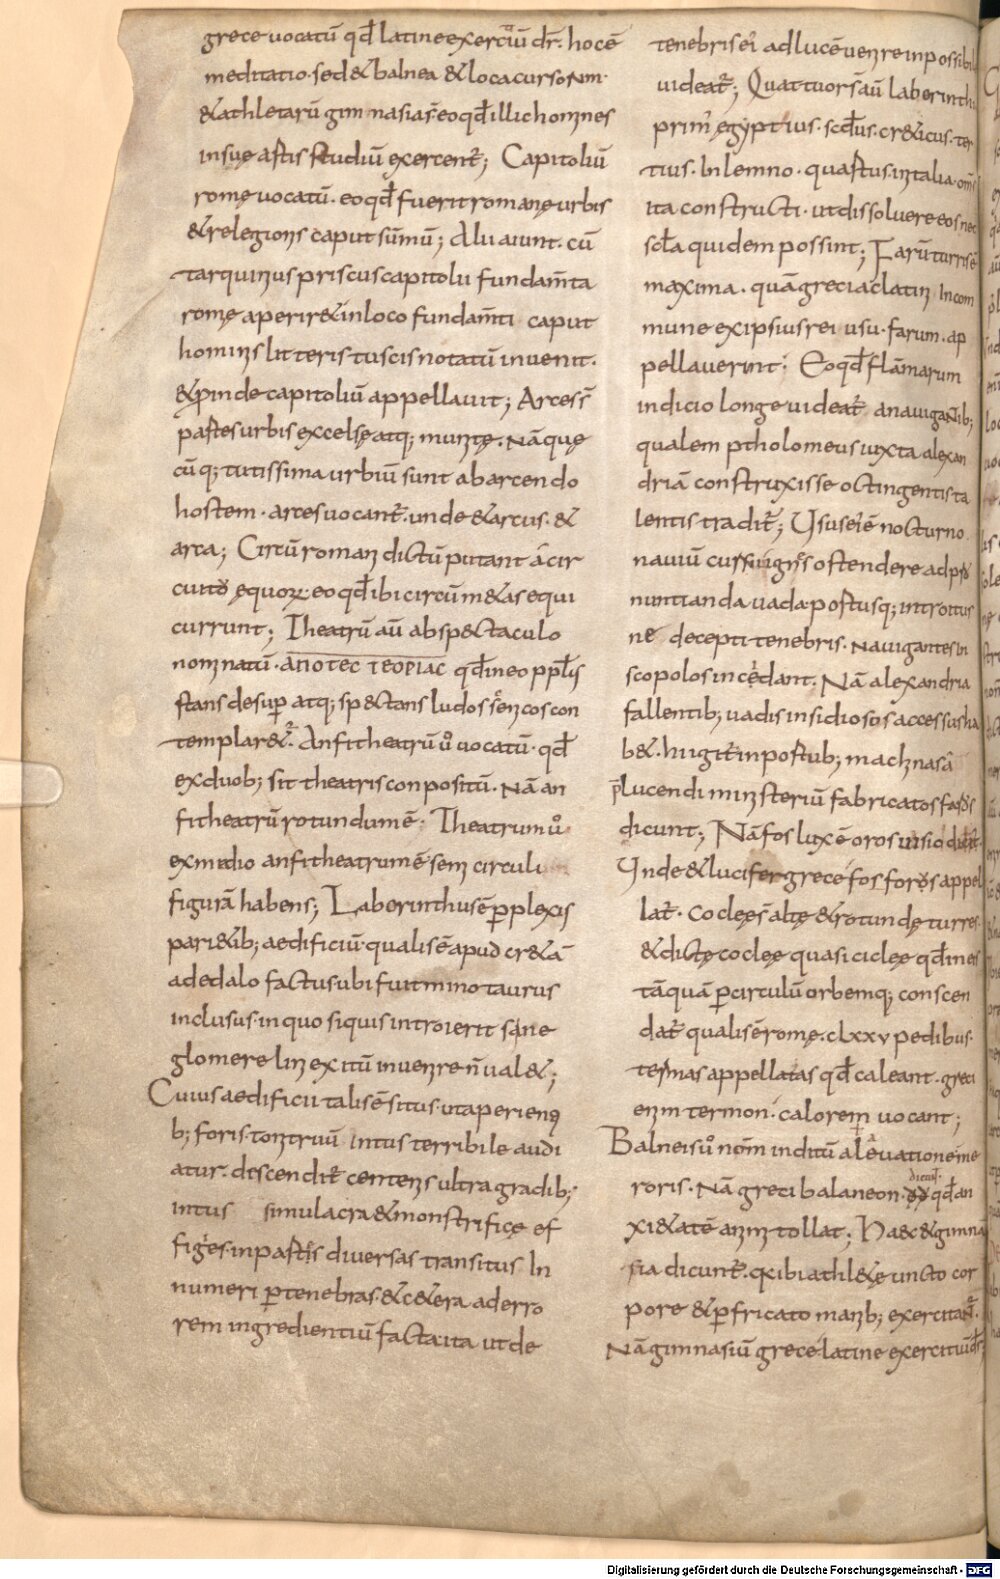 grece uocatū qđ latine exerciū dr̄. hoc ē
meditatio. sed & balnea & loca cursorum.
& athletarū gimnasia s̄ eo qđ illic homines
in suę artis studiū exercent̄; Capitoliū
romę uocatū. eo qđ fuerit romanę urbis
& relegionis caput sūmū; Alii aiunt. cū
tarquinus priscus capitolii fundam̄ta
romę aperir& in loco fundam̄ti caput
hominis litteris tuscis notatū inuenit.
& ꝓinde capitoliū appellauit; Arces s̄
partes urbis excelsę atq; munitę. Nā quę
cūq; tutissima urbiū sunt ab arcendo
hostem. arces uocant̄. unde & arcus. &
arca; Circū romani dictū putant á cir
cuitu equorum. eo qđ ibi circū m&as equi
currunt; Theatrū aū ab sp&ctaculo
nominatū. ΑΠΟΤΕC ΤΕΟΡΙΑC qđ in eo ppl̄s
stans desup atq; sp&ctans ludos scenicos con
templar&̄. Anfitheatrū ů uocatū. qđ
ex duob; sit theatris conpositū. Nā an
fitheatrū rotundum ē. Theatrum ů
ex medio anfitheatrum ē sem circuli
figurā habens; Laborinthus ē ꝑplexis
pari&ib; aedificiū. qualis ē apud cr&ā
a dedalo factus ubi fuit minotaurus
inclusus. in quo siquis introierit sine
glomere lini exitū inuenire ñ ual&;
Cuius aedificii talis ē situs. ut aperienq
b; foris. tonitruū intus terribile audi
atur. descendit̄ centenis ultra gradib;
intus simulacra & monstrificę ef
figies. in partes diuersas transitus In
numeri ꝑ tenebras. & c&era ad erro
rem ingredientiū facta. ita ut de
tenebris eı̓ ad lucē uenire inpossibi
uideat̄; Quattuor s̄ aū laberinthi
prim' egyptius. scđus. cr&icus. ter
tius. In lemno. quartus. in italia. om̄s
ita constructi. ut dissoluere eos nec
scl̄a quidem possint; Farū turris ē
maxima. quā greci ac latini In com
mune ex ipsius rei usu. farum. ap
pellauerunt. Eo qđ flāmarum
indicio longe uideat̄ a nauigantib;
qualem ptholomeus iuxta alexan
driā construxisse octingentis ta
lentis tradit̄; Usus eı̓ ē nocturno
nauiū cursui ignes ostendere ad p̄
nuntianda uada. portusq; introitus
ne decepti tenebris. nauigantes in
scopolos incedant. Nā alexandria
fallentib; uadis insidiosos accessus ha
b&. hui igit̄ in portub; machinas ā
p̄lucendi ministeriū fabricatos faros
dicunt; Nā fos lux ē oros uisio
Unde & lucifer grece fosforos appel
lat̄. Cocleę s̄ altę & rotundę turres.
& dictę cocleę quasi ciclę qđ in eis
tāquā ꝑ circulū orbemq; conscen
dat̄ qualis ē romę. clxxv pedibus.
termas appellatas qđ caleant. greci
enim termon. calorem uocant;
Balneis ů nom̄ inditū a leuatione me
roris. Nā greci balaneon. dicunt qđ an
xi&atē animi tollat; Haec & gimna
sia dicunt̄. q̊ ibi athl&ę uncto cor
pore & ꝑfricato manib; exercitant̄.
Nā gimnasiū grece. latine exercitiū dr̄;
Digitalisierung gefördert durch die Deutsche Forschungsgemeinschaft - DFG